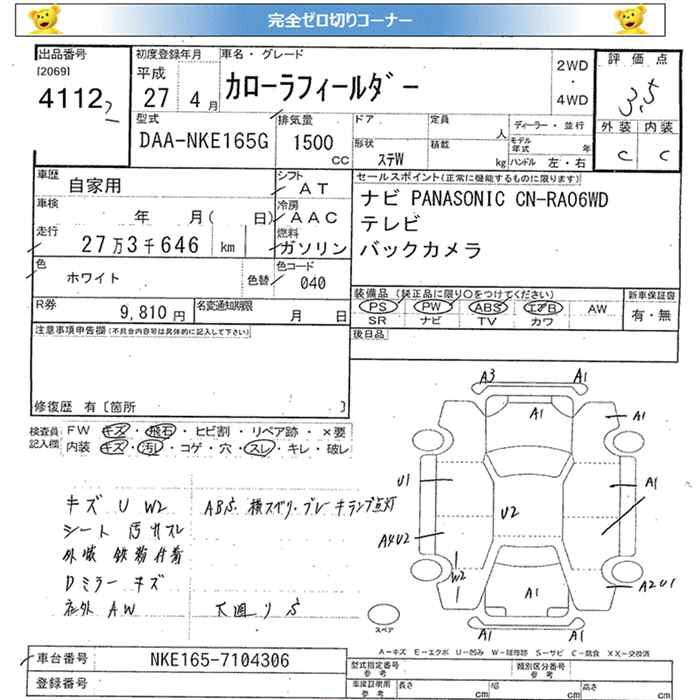 完全ゼロ切りコーナー
出品番号
[2069]
4112
初度登録年月
平成
27 4 月
車名・グレード
カローラフィールダー
2WD
・
4WD
評価点
3,5
外装 内装
C C
型式
DAA-NKE165G
排気量
1500
CC
ドア
形状
ステW
定員
人
積載
kg
ディーラー・並行
モデル年式 年
ハンドル 左・右
車歴
自家用
シフト
AT
車検
年 月( 日)
冷房
AAC
走行
27万3千646 km
燃料
ガソリン
色
ホワイト
色替
色コード
040
R券
9,810 円
名変通知期限
月 日
セールスポイント(正常に機能するものに限ります)
ナビ PANASONIC CN-RA06WD
テレビ
バックカメラ
装備品(純正品に限り○をつけてください)
PS PW ABS エアB AW
SR ナビ TV カワ
新車保証書
有・無
後日品
注意事項申告欄(不具合内容等は具体的に記入して下さい)
修復歴 有[箇所 ]
検査員記入欄
FW キズ・飛石・ヒビ割・リペア跡・×要
内装 キズ・汚レ・コゲ・穴・スレ・キレ・破レ
キズ U W2
シート 汚れスレ
外装 鉄粉付着
Dミラー キズ
社外 AW
ABS 横スベリ・ブレーキランプ点灯
下廻りS
A3 A1
A1 A1
U1 A1
U2
A4U2
W2
A1 A2U1
A1 A1
スペア
A-キズ E-エクボ U-凹み W-補修跡 S-サビ C-腐食 XX-交換済
車台番号
NKE165-7104306
登録番号
型式指定番号
参考
類別区分番号
参考
車検証明用
参考
長さ cm
幅 cm
高さ cm